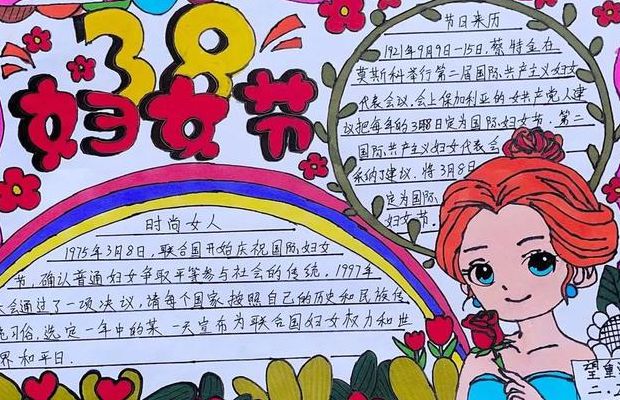 38
妇女节
节日来历
1921年9月9日-15日,蔡特金在
莫斯科举行第二届国际共产主义妇女
代表会议,会上保加利亚的女共产党人建
议把每年的3月8日定为国际妇女节.第二
国际共产主义妇女代表会
纳了建议.将3月8日
定为国际
妇女节.
时尚女人
1975年3月8日,联合国开始庆祝国际妇女
节,确认普通妇女争取平等参与社会的传统.1997年
大会通过了一项决议,请每个国家按照自己的历史和民族传
统习俗,选定一年中的某一天宣布为联合国妇女权力和世
界和平日.
望重
二.